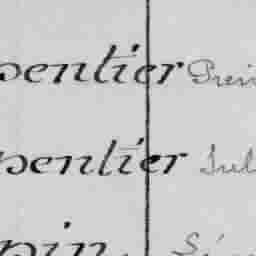 pentier Prei
pentier Jul
pin